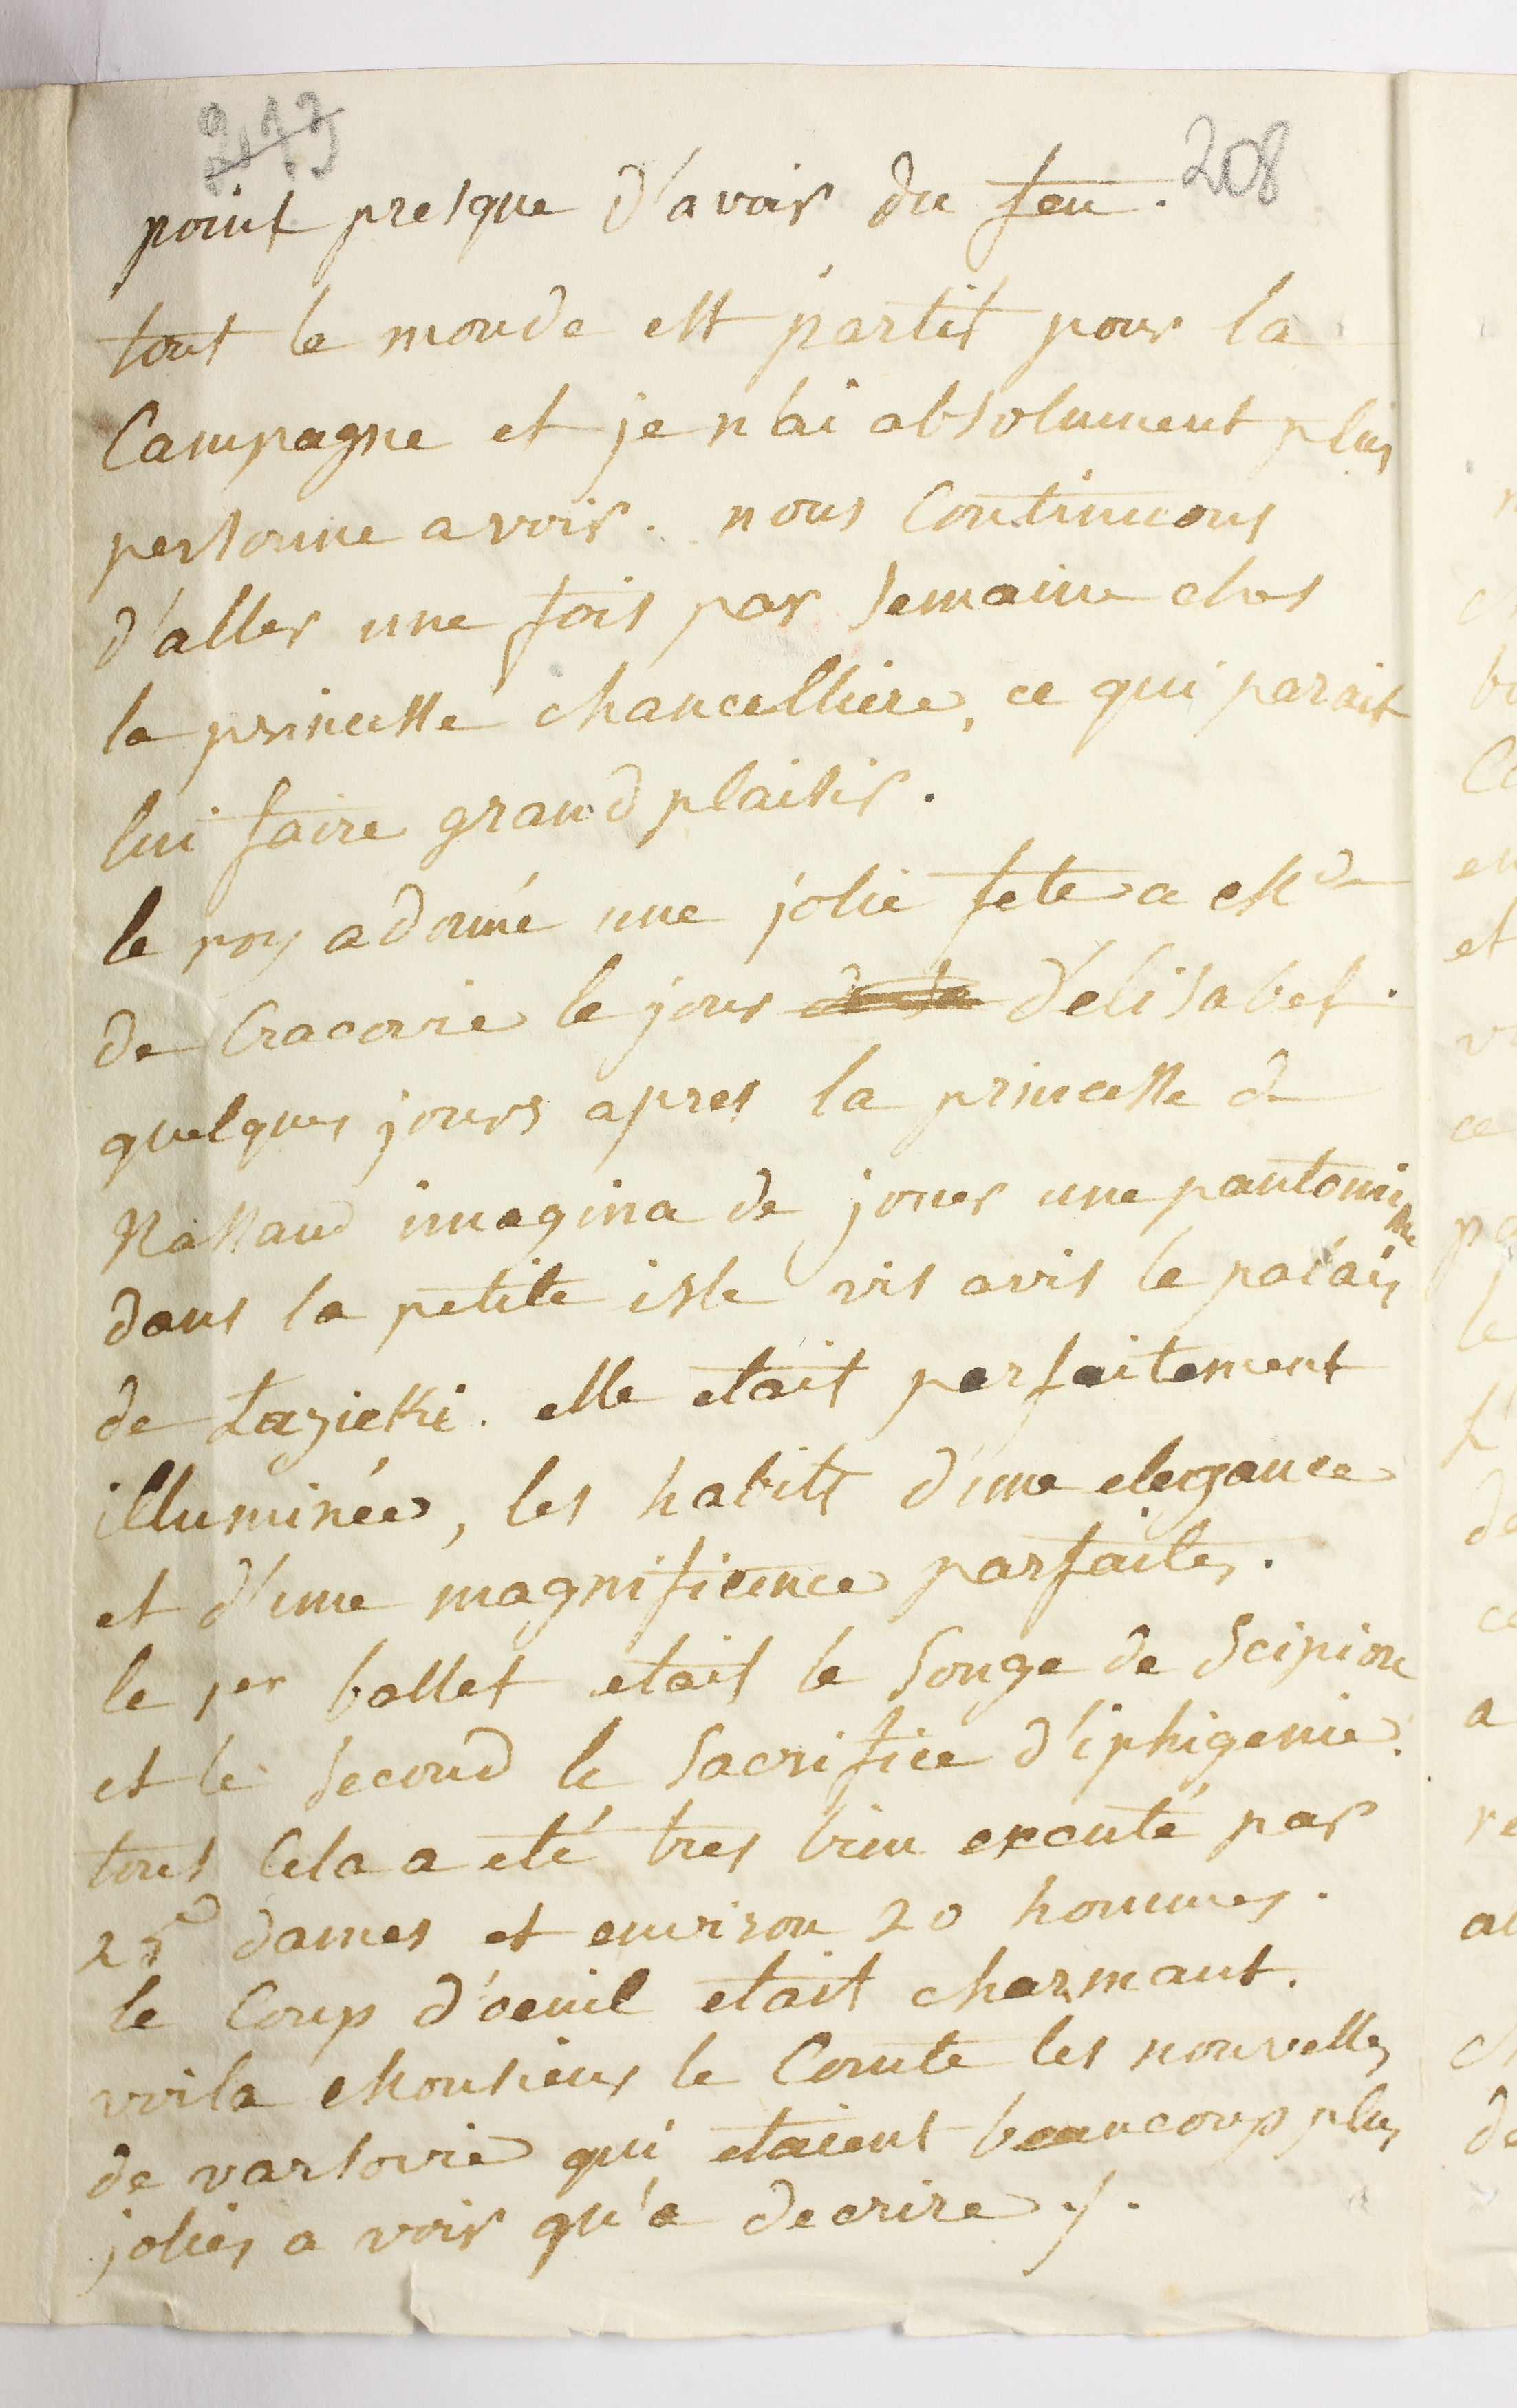 219
208
point presque d'avoir du feu.
tout le monde est partit pour la
Campagne et je n'ai absolument plus
personne a voir. nous Continuons
d'aller une fois par semaine ches
la princesse chancelliere, ce qui parait
lui faire grand plaisir.
le roy a donné une jolie fete a Mde
de Cracovie le jour d'elisabet.
quelques jours apres la princesse de
Nassau imagina de jouer une pantomime
dans la petite isle vis avis le palais
de Lazieki. elle etait parfaitement
illuminée, les habits d'une elegance
et d'une magnificence parfaites.
le 1er ballet etait le songe de Scipion
et le second le sacrifice d'iphigenie.
tout Cela a eté tres bien executé par
25 dames et environ 20 hommes.
le Coup d'oeuil etait charmant.
voila Monsieur le Comte les nouvelles
de varsovie qui etaient beaucoup plus
jolies a voir qu'a decrire.